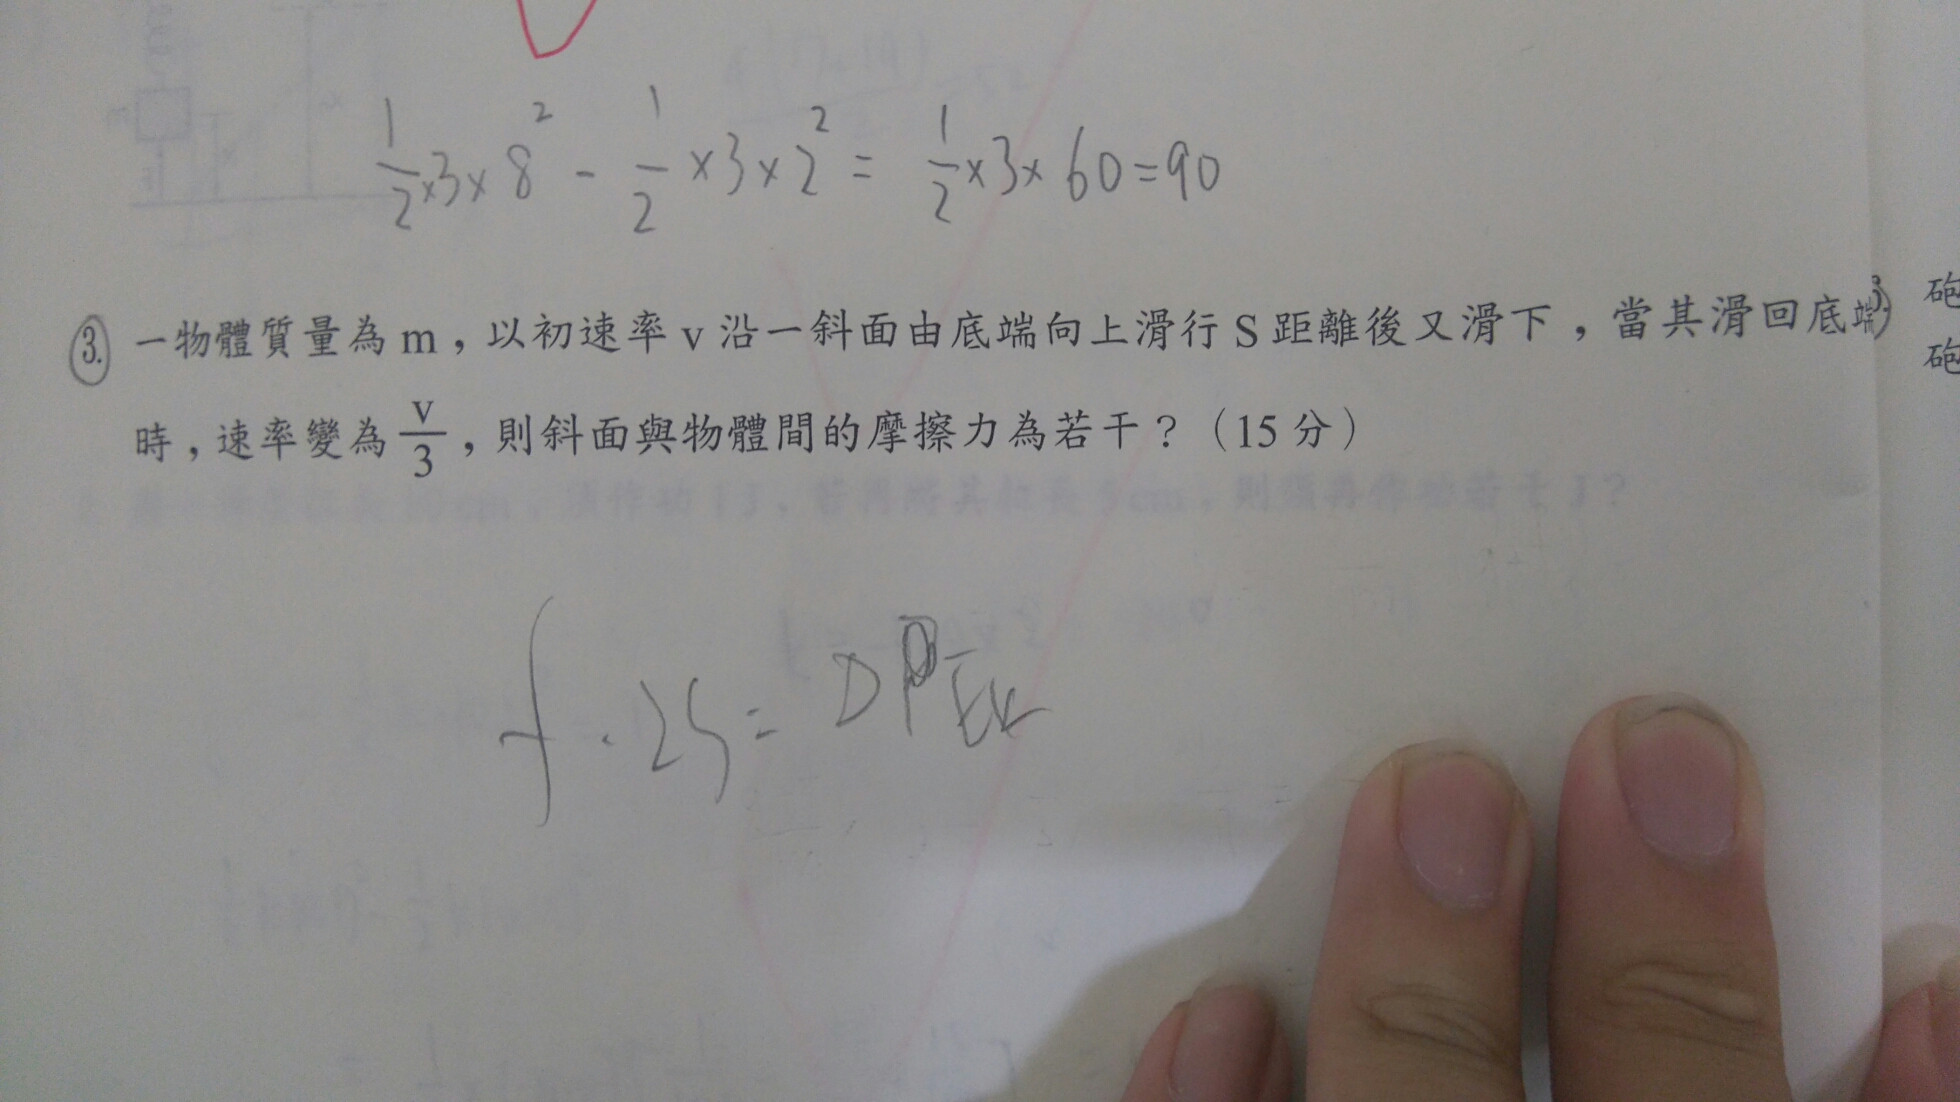 1/2 ×3× 8² - 1/2 ×3×2² = 1/2 ×3× 60=90
3. 一物體質量為 m，以初速率 v 沿一斜面由底端向上滑行 S 距離後又滑下，當其滑回底端
時，速率變為 v/3，則斜面與物體間的摩擦力為若干？（15 分）
f · 2S =
砲
砲